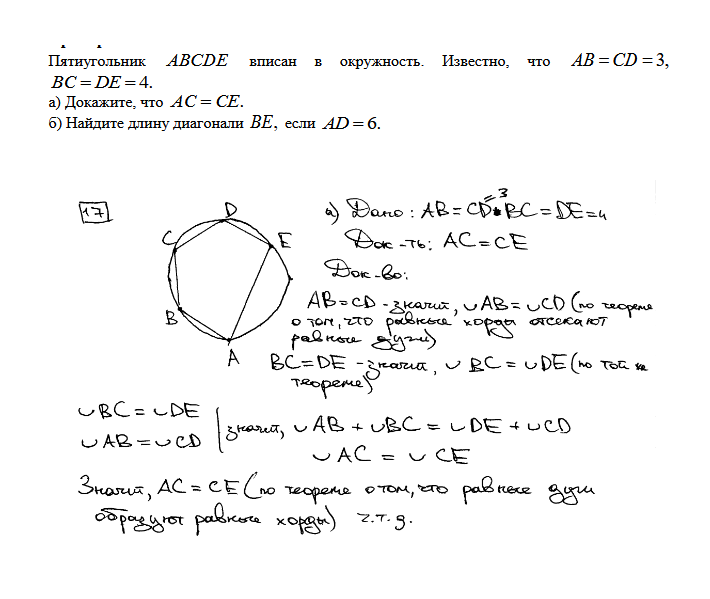 Пятиугольник ABCDE вписан в окружность. Известно, что AB = CD = 3,
BC = DE = 4.
а) Докажите, что AC = CE.
б) Найдите длину диагонали BE, если AD = 6.
17
D
C
E
B
A
а) Дано: AB = CD = 3 BC = DE = 4
Док-ть: AC = CE
Док-во:
AB = CD - значит, ∪AB = ∪CD (по теореме
о том, что равные хорды отсекают
равные дуги)
BC = DE - значит, ∪BC = ∪DE (по той же
теореме)
∪BC = ∪DE
∪AB = ∪CD
значит, ∪AB + ∪BC = ∪DE + ∪CD
∪AC = ∪CE
Значит, AC = CE (по теореме о том, что равные дуги
образуют равные хорды) ч.т.д.